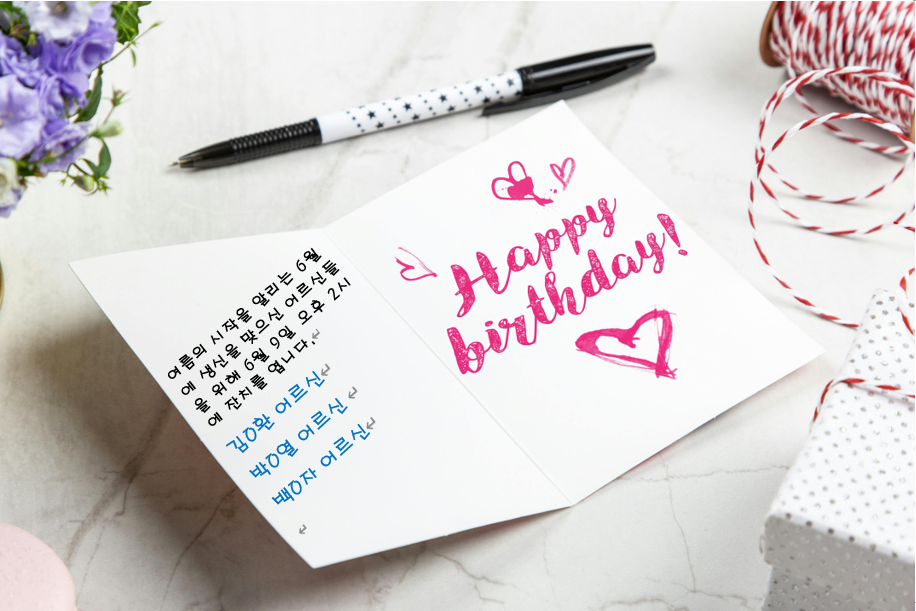 여름의 시작을 알리는 6월
에 생신을 맞으신 어르신들
을 위해 6월 9일 오후 2시
에 잔치를 엽니다.
김O환 어르신
박O열 어르신
백O자 어르신
Happy
birthday!